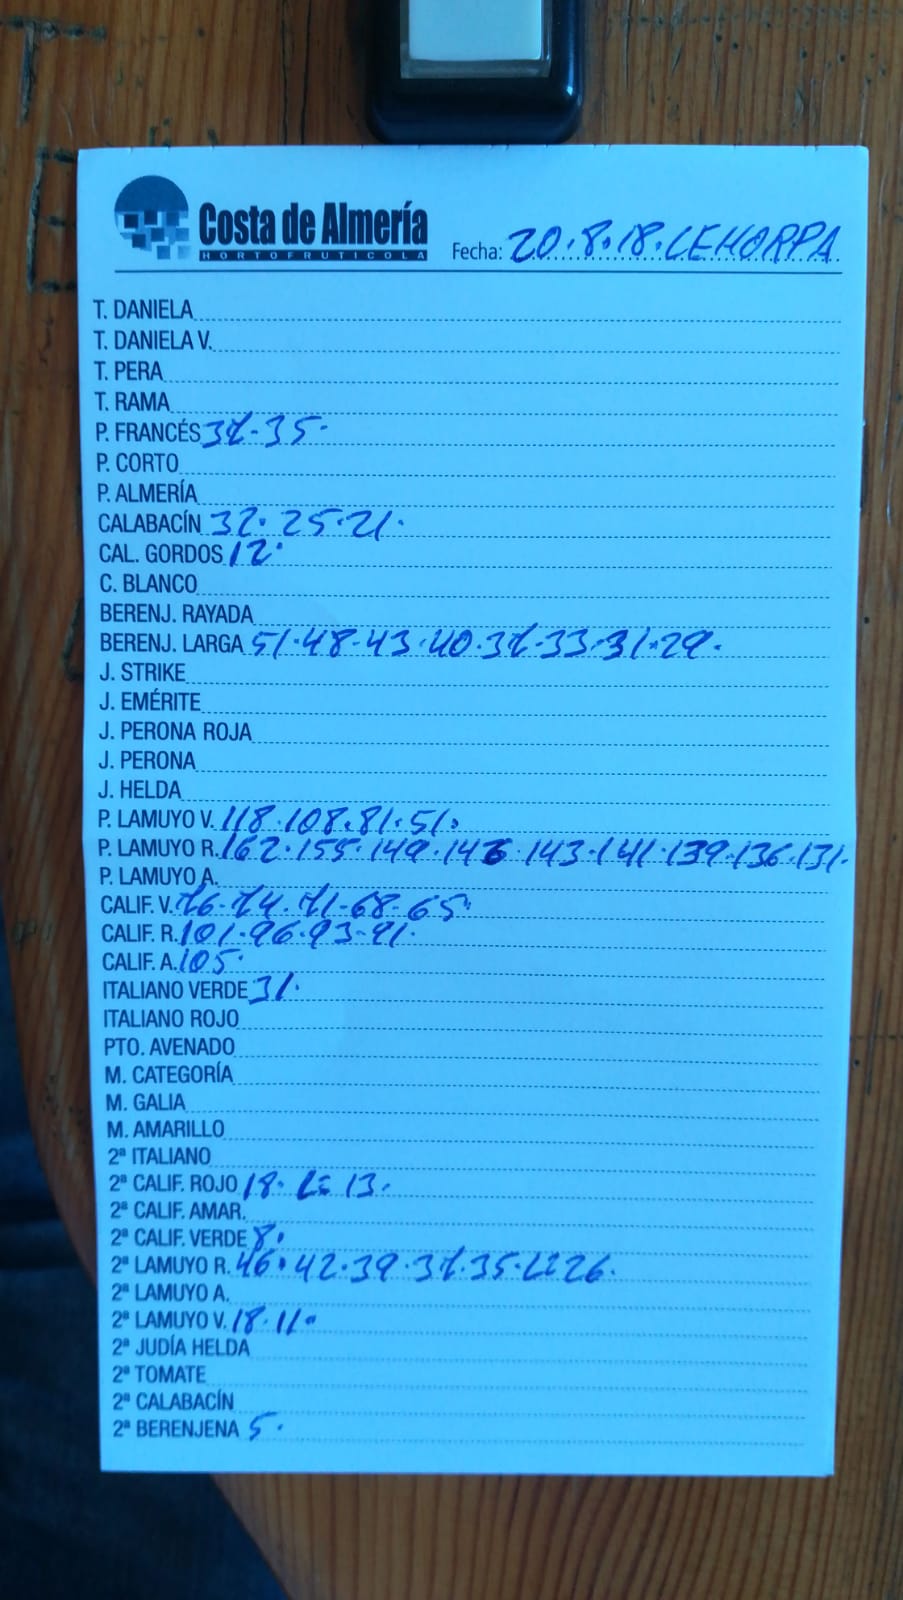 Costa de Almería
HORTOFRUTICOLA
Fecha: 20.8.18. CEHORPA
T. DANIELA
T. DANIELA V.
T. PERA
T. RAMA
P. FRANCÉS 37-35.
P. CORTO
P. ALMERÍA
CALABACÍN 32. 25.21.
CAL. GORDOS 12.
C. BLANCO
BERENJ. RAYADA
BERENJ. LARGA 51.48-43.40.37-33-31.29.
J. STRIKE
J. EMÉRITE
J. PERONA ROJA
J. PERONA
J. HELDA
P. LAMUYO V. 118.108.81.51.
P. LAMUYO R. 162.155.149.146.143.141.139.136.131.
P. LAMUYO A.
CALIF. V. 76-74.71-68-65.
CALIF. R. 101.96-93-91.
CALIF. A. 105.
ITALIANO VERDE 31.
ITALIANO ROJO
PTO. AVENADO
M. CATEGORÍA
M. GALIA
M. AMARILLO
2ª ITALIANO
2ª CALIF. ROJO 18. 13.
2ª CALIF. AMAR.
2ª CALIF. VERDE 8.
2ª LAMUYO R. 46.42.39.37.35. 26.
2ª LAMUYO A.
2ª LAMUYO V. 18.11.
2ª JUDÍA HELDA
2ª TOMATE
2ª CALABACÍN
2ª BERENJENA 5.